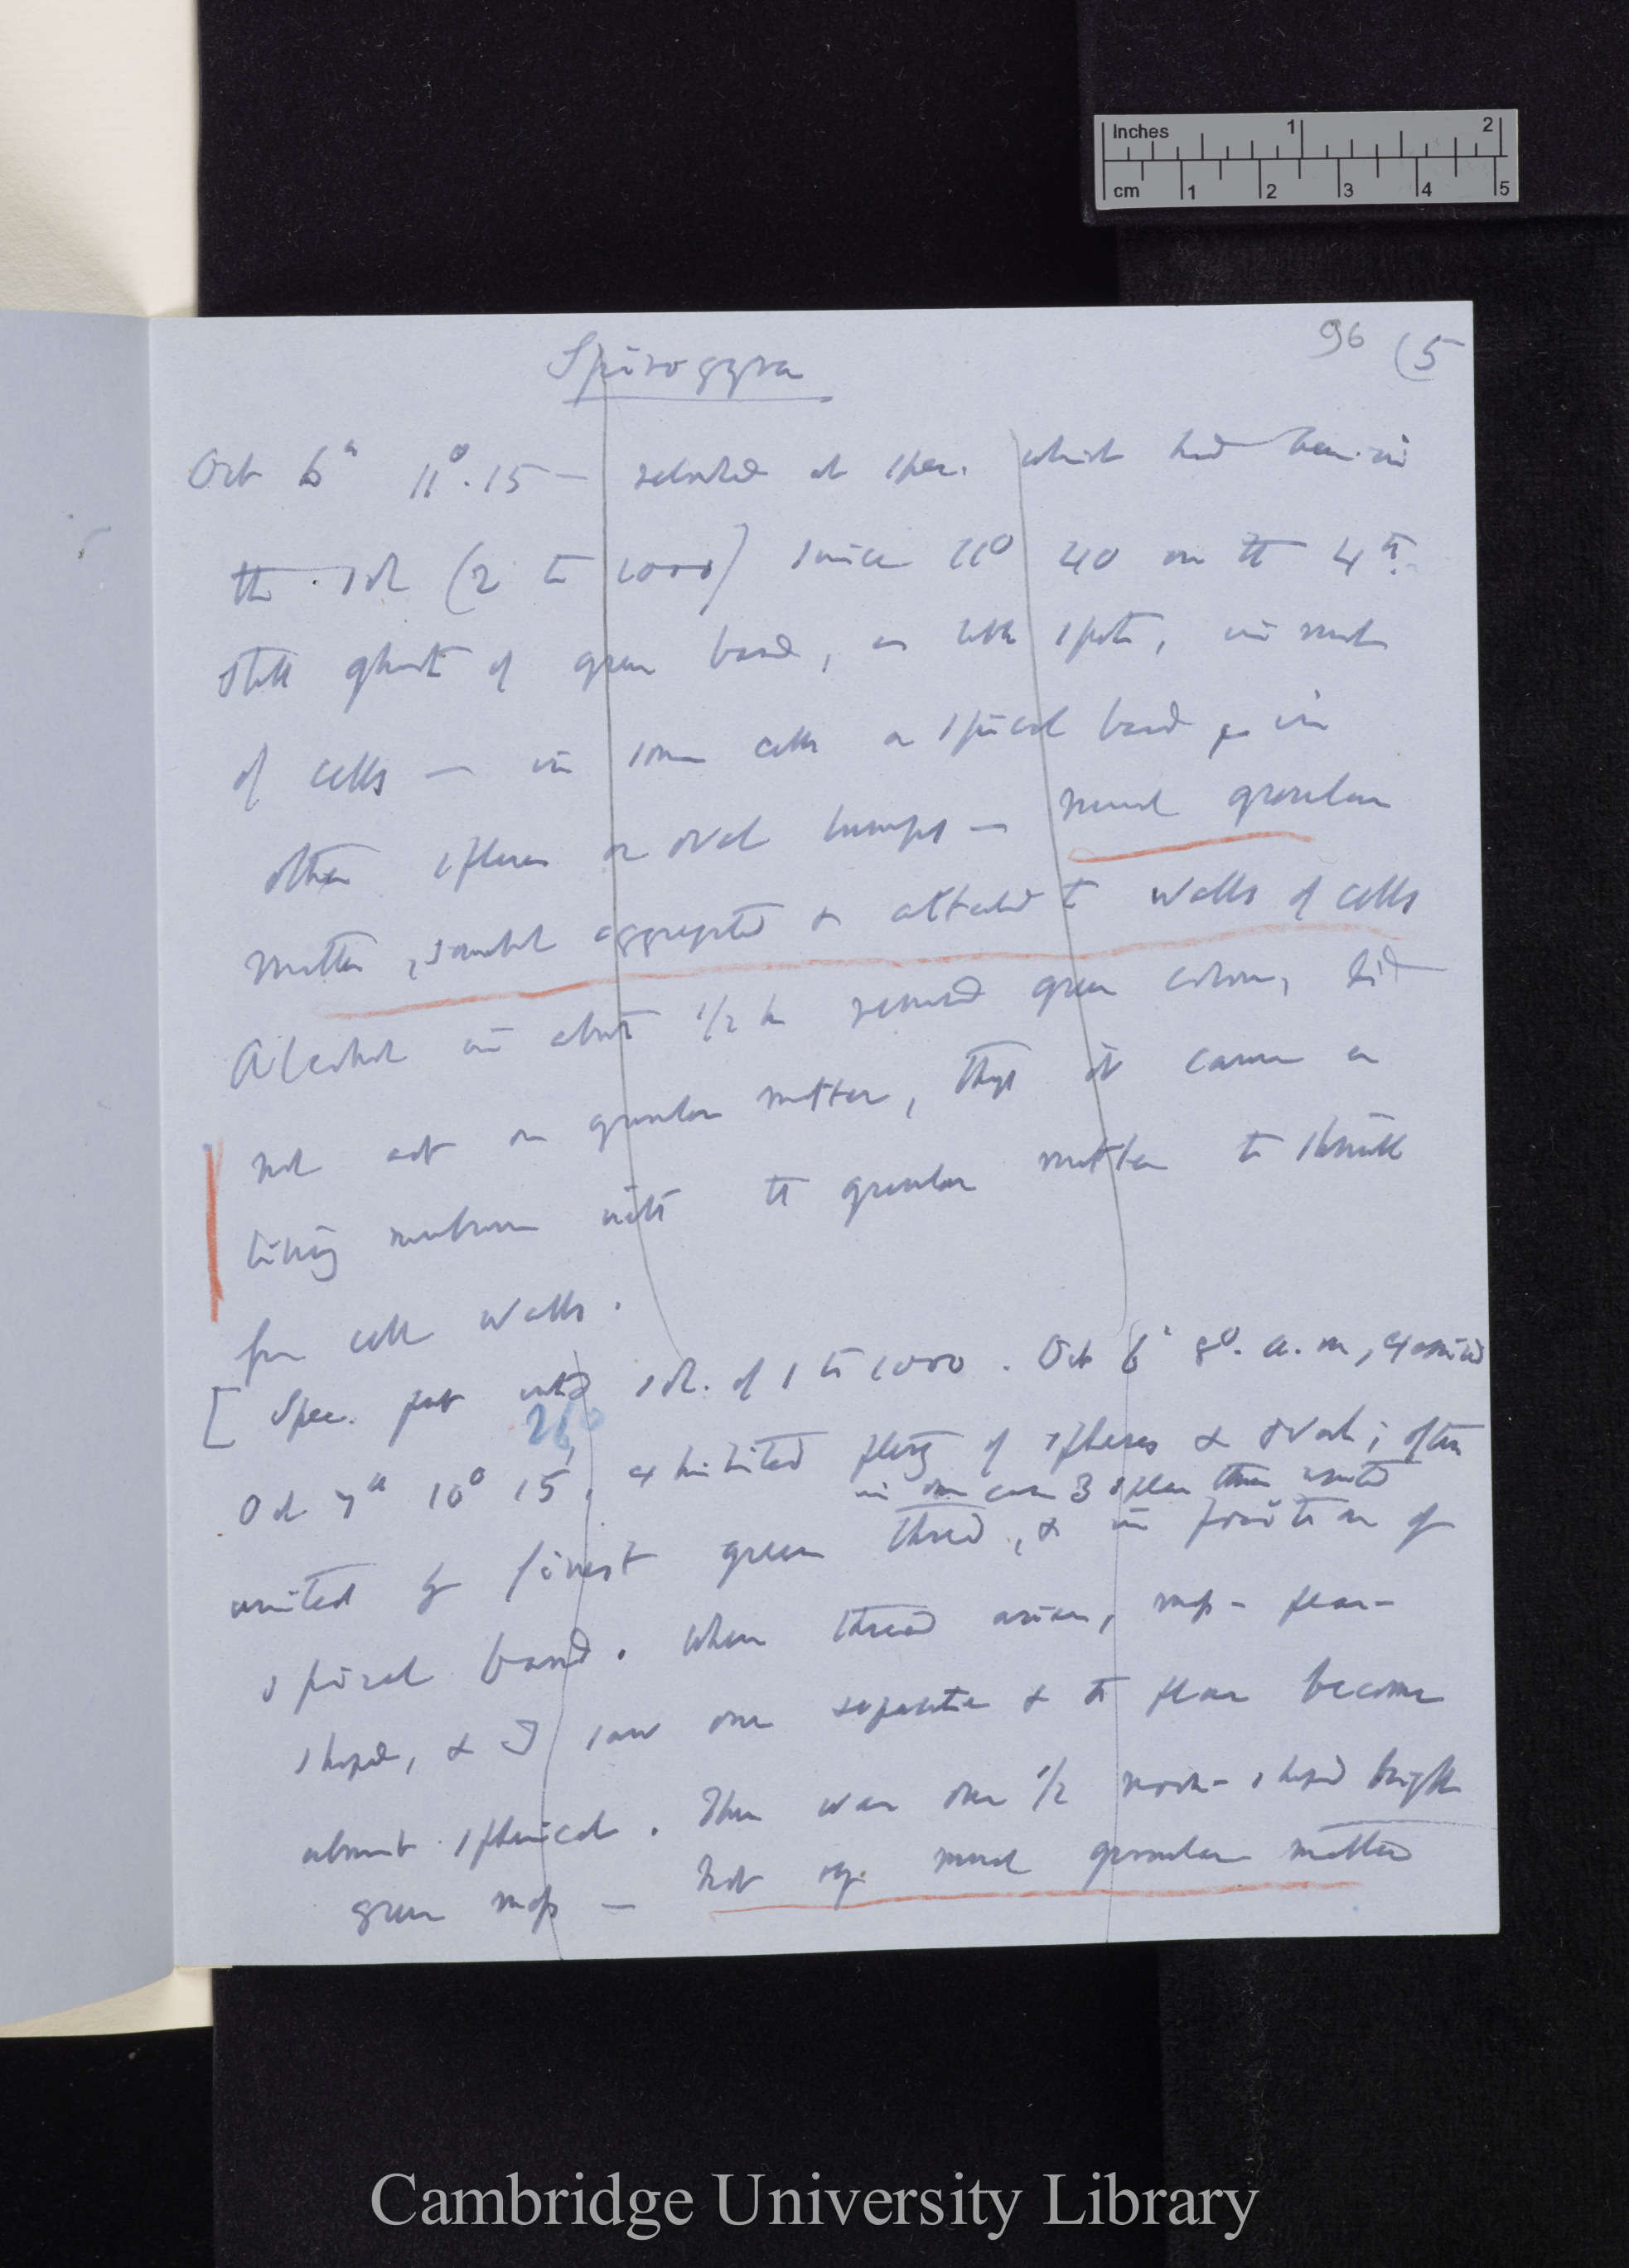 Inches 1 2
cm 1 2 3 4 5
96 (5
Spirogyra
Oct 6th 11°.15 — looked at spec. which had been in
the sol (2 to 1000) since 11° 40 on the 4th.
Still ghost of green band, as little spots, in most
of cells — in some cells a spiral band in
other spheres or oval lumps — much granular
matter, somewhat aggregated & attached to walls of cells
Alcohol in about 1/2 h removed green colour, did
not act on granular matter, though it causes a
lining membrane with the granular matter to shrink
from cell walls.
[Spec. put into sol. of 1 to 1000. Oct 6th 8°. a.m, examined
26°
Oct. 7th 10° 15', exhibited plenty of spheres & ovals; often
in one case 3 spheres thus united
united by finest green thread, & in position of
spiral band. When thread arises, often pear-
shaped, & I saw one separate & the pear become
almost spherical. There was one 1/2 moon-shaped bright
green mass — Not much granular matter
Cambridge University Library